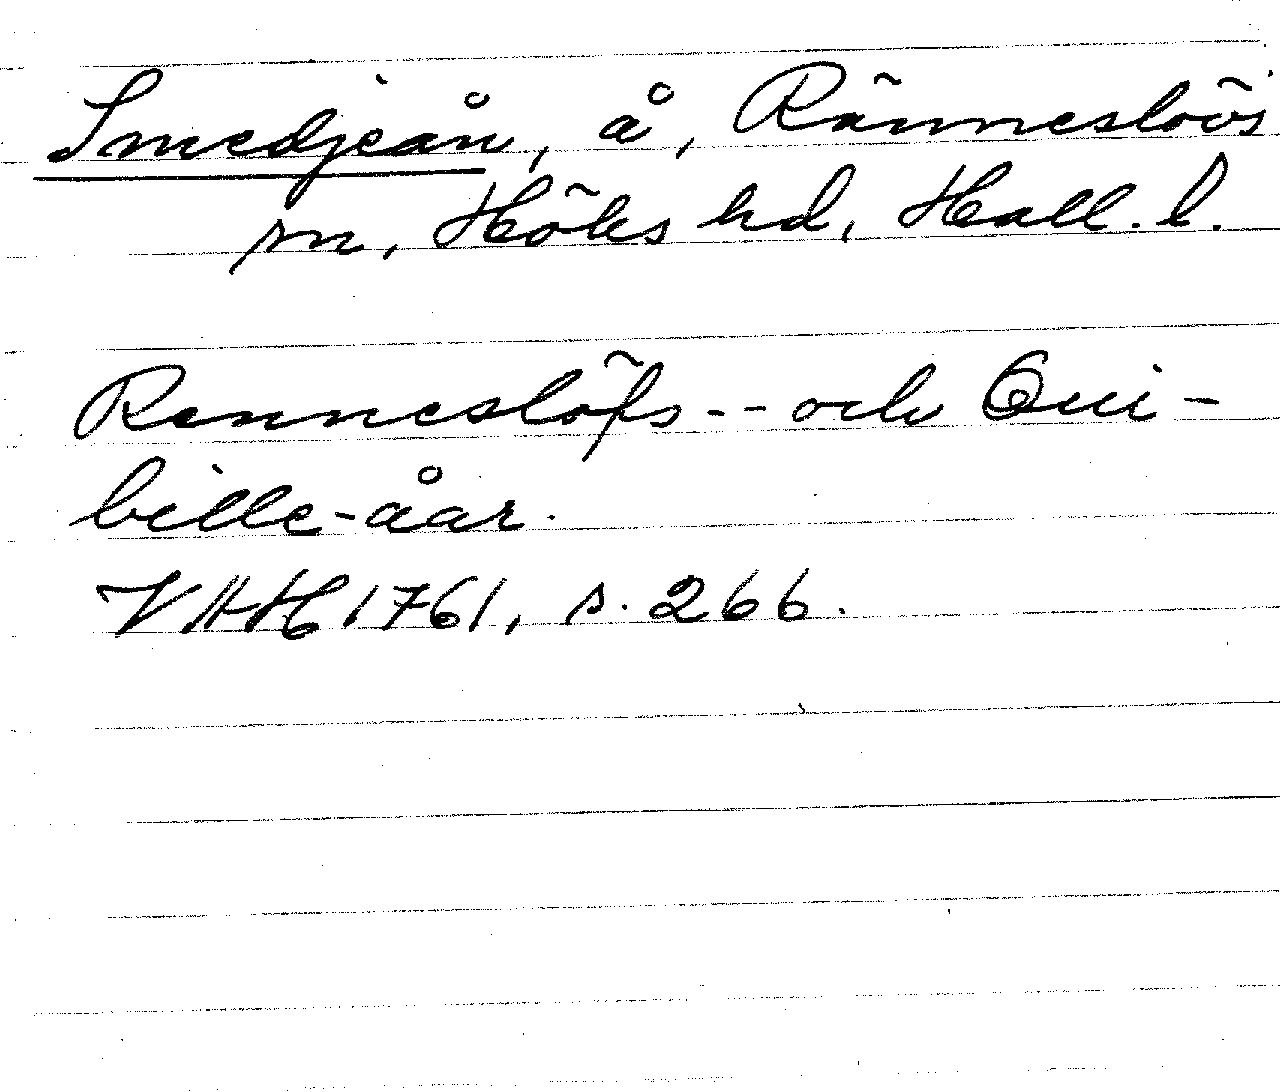 Smedjeån, å, Ränneslövs
sn, Höks hd, Hall. l.
Renneslöfs -- och Qui-
bille-åar.
VAH 1761, s. 266.